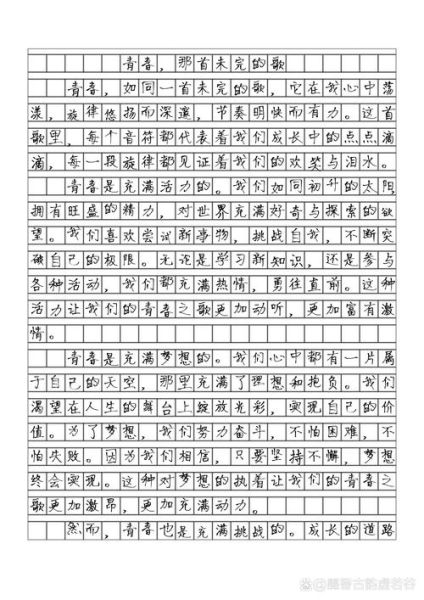 青春，那首未完的歌
青春，如同一首未完的歌，它在我心中荡
漾，旋律悠扬而深邃，节奏明快而有力。这首
歌里，每个音符都代表着我们成长中的点点滴
滴，每一段旋律都见证着我们的欢笑与泪水。
青春是充满活力的。我们如同初升的太阳，
拥有旺盛的精力，对世界充满好奇与探索的欲
望。我们喜欢尝试新事物，挑战自我，不断突
破自己的极限。无论是学习新知识，还是参与
各种活动，我们都充满热情，勇往直前。这种
活力让我们的青春之歌更加动听，更加富有激
情。
青春是充满梦想的。我们心中都有一片属
于自己的天空，那里充满了理想和抱负。我们
渴望在人生的舞台上绽放光彩，实现自己的价
值。为了梦想，我们努力奋斗，不怕困难，不
怕失败。因为我们相信，只要坚持不懈，梦想
终会实现。这种对梦想的执着让我们的青春之
歌更加激昂，更加充满动力。
然而，青春也是充满挑战的。成长的道路